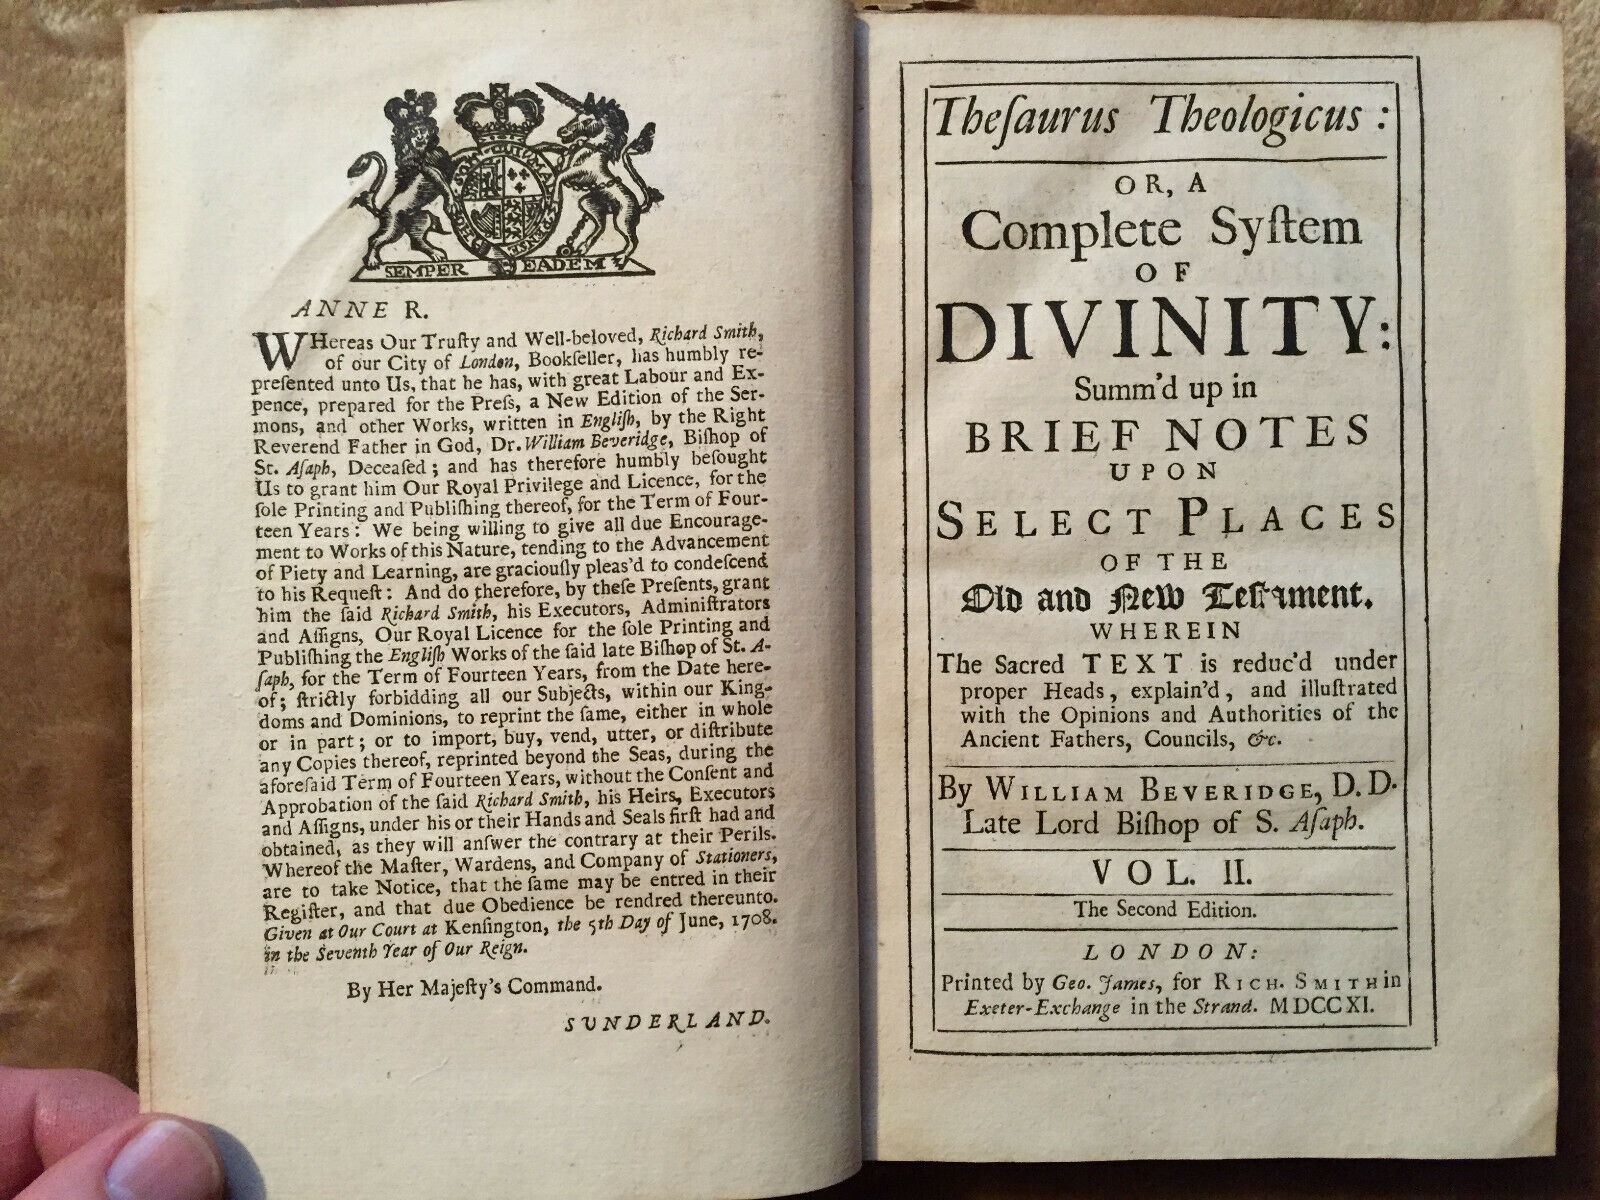 HONI SOIT QUI MAL Y PENSE
SEMPER EADEM
ANNE R.
WHereas Our Truſty and Well-beloved, Richard Smith,
of our City of London, Bookſeller, has humbly re-
preſented unto Us, that he has, with great Labour and Ex-
pence, prepared for the Preſs, a New Edition of the Ser-
mons, and other Works, written in Engliſh, by the Right
Reverend Father in God, Dr. William Beveridge, Biſhop of
St. Aſaph, Deceaſed; and has therefore humbly beſought
Us to grant him Our Royal Privilege and Licence, for the
ſole Printing and Publiſhing thereof, for the Term of Four-
teen Years: We being willing to give all due Encourage-
ment to Works of this Nature, tending to the Advancement
of Piety and Learning, are graciouſly pleas'd to condeſcend
to his Requeſt: And do therefore, by theſe Preſents, grant
him the ſaid Richard Smith, his Executors, Adminiſtrators
and Aſſigns, Our Royal Licence for the ſole Printing and
Publiſhing the Engliſh Works of the ſaid late Biſhop of St. A-
ſaph, for the Term of Fourteen Years, from the Date here-
of; ſtrictly forbidding all our Subjects, within our King-
doms and Dominions, to reprint the ſame, either in whole
or in part; or to import, buy, vend, utter, or diſtribute
any Copies thereof, reprinted beyond the Seas, during the
aforeſaid Term of Fourteen Years, without the Conſent and
Approbation of the ſaid Richard Smith, his Heirs, Executors
and Aſſigns, under his or their Hands and Seals firſt had and
obtained, as they will anſwer the contrary at their Perils.
Whereof the Maſter, Wardens, and Company of Stationers,
are to take Notice, that the ſame may be entred in their
Regiſter, and that due Obedience be rendred thereunto.
Given at Our Court at Kenſington, the 5th Day of June, 1708.
in the Seventh Year of Our Reign.
By Her Majeſty's Command.
SUNDERLAND.
Theſaurus Theologicus:
OR, A
Complete Syſtem
OF
DIVINITY:
Summ'd up in
BRIEF NOTES
UPON
SELECT PLACES
OF THE
Old and New Teſtament.
WHEREIN
The Sacred TEXT is reduc'd under
proper Heads, explain'd, and illuſtrated
with the Opinions and Authorities of the
Ancient Fathers, Councils, &c.
By WILLIAM BEVERIDGE, D.D.
Late Lord Biſhop of S. Aſaph.
VOL. II.
The Second Edition.
LONDON:
Printed by Geo. James, for RICH. SMITH in
Exeter-Exchange in the Strand. MDCCXI.